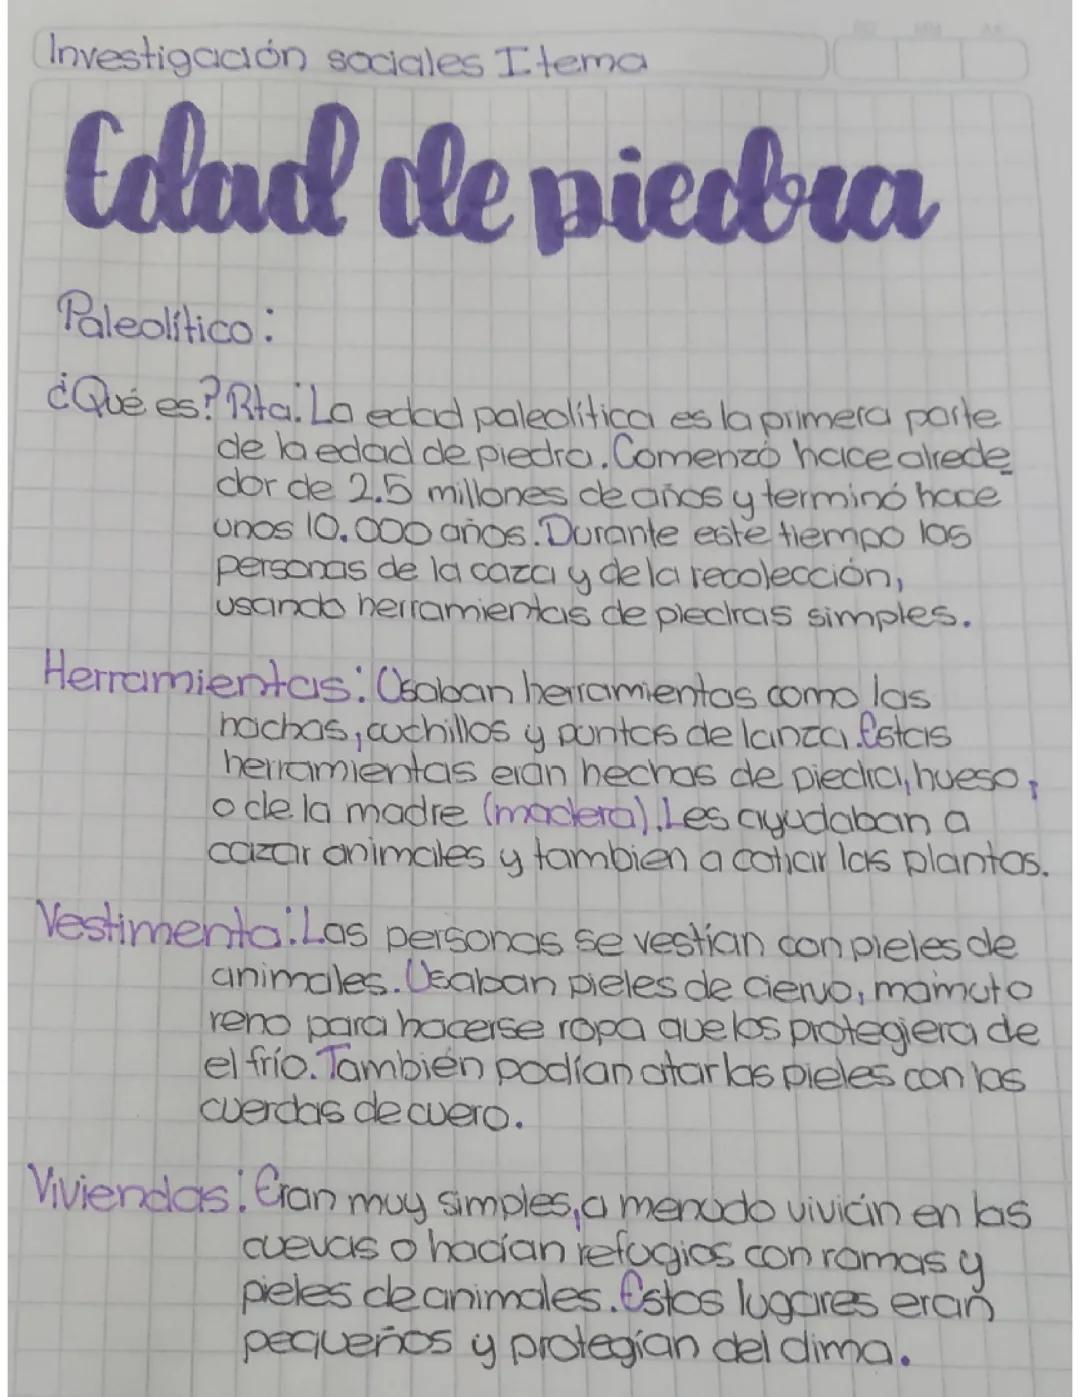 Investigación sociales I tema
Edad de piedra
Paleolítico:
¿Qué es? Rta: La edad paleolítica es la primera parte
de la edad de piedra. Comenzó hace alrede
dor de 2.5 millones de años y terminó hace
unos 10.000 años. Durante este tiempo las
personas de la caza y de la recolección,
usando herramientas de piedras simples.
Herramientas: Usaban herramientas como las
hachas, cuchillos y puntas de lanza. Estas
herramientas eran hechas de piedra, hueso,
o de la madre (madera). Les ayudaban a
cazar animales y tambien a cortar las plantas.
Vestimenta: Las personas se vestían con pieles de
animales. Usaban pieles de ciervo, mamut o
reno para hacerse ropa que los protegiera de
el frío. También podían atar las pieles con las
cuerdas de cuero.
Viviendas: Eran muy simples, a menudo vivían en las
cuevas o hacían refugios con ramas y
pieles de animales. Estos lugares eran
pequeños y protegían del clima.